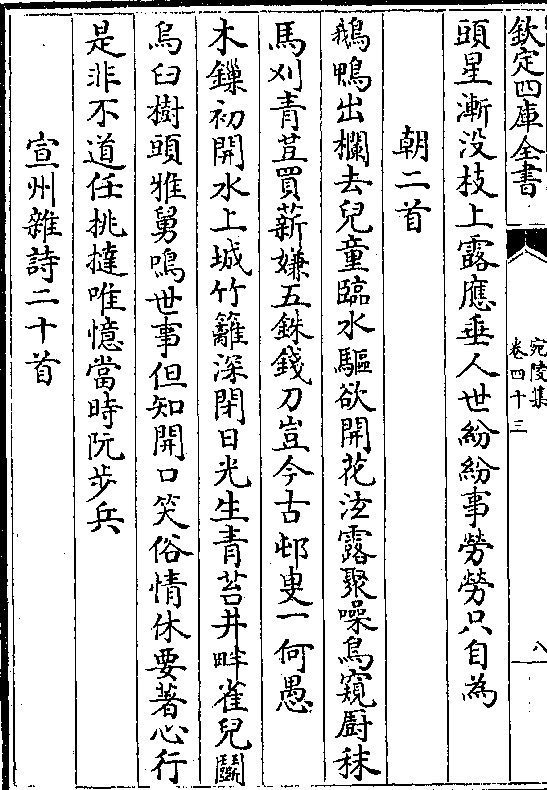 欽定四庫全書
宛陵集
卷四十三
八
頭星漸没枝上露應垂人世紛紛事勞勞只自為
朝二首
鵝鴨出欄去兒童臨水驅欲開花泫露聚噪鳥窺厨秣
馬刈青荳買薪嫌五銖錢刀豈今古邨叟一何愚
木鏁初開水上城竹籬深閉日光生青苔井畔雀兒鬬
烏臼樹頭雅舅鳴世事但知開口笑俗情休要著心行
是非不道任挑撻唯憶當時阮步兵
宣州雜詩二十首